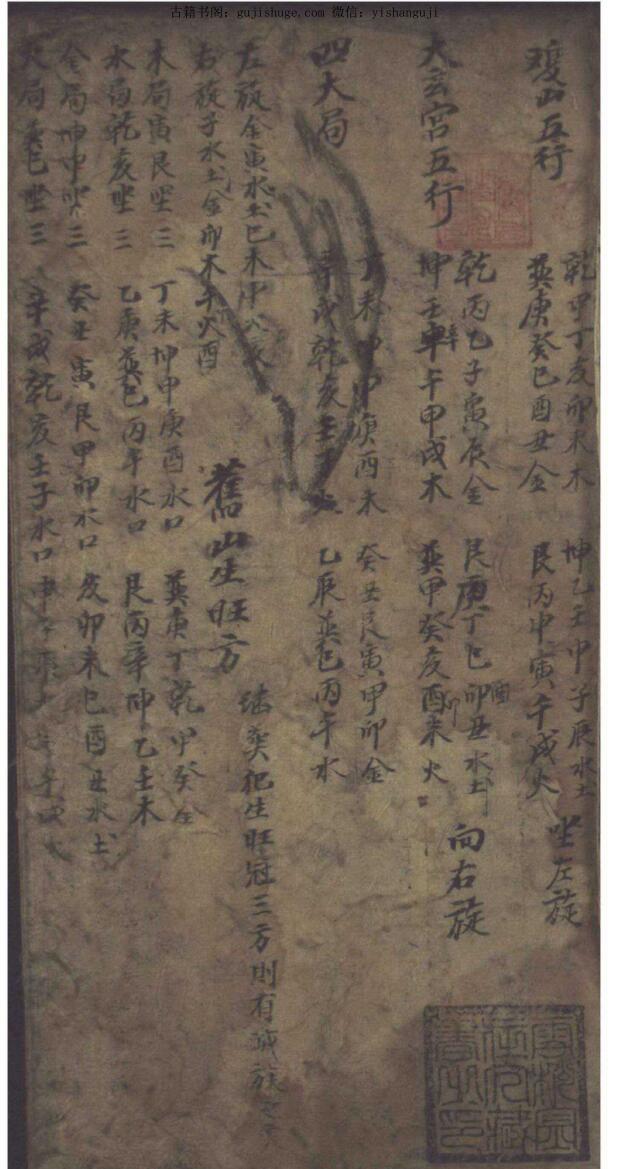 古籍书阁：gujishuge.com 微信：yishanguji
雙山五行
乾甲丁亥卯未木
坤乙壬申子辰水土
巽庚癸巳酉丑金
艮丙辛寅午戌火
坐左旋
大玄宮五行
乾丙乙子寅辰金
艮庚丁巳卯丑水土
酉
坤壬辛午申戌木
巽甲癸亥酉未火
卯
向右旋
四大局
丁未坤申庚酉木
癸丑艮寅甲卯金
辛戌乾亥壬子火
乙辰巽巳丙午水
左旋金寅水土巳木申火亥
右旋子水土金卯木午火酉
舊山生旺方
犯生旺冠三方則有
木局寅艮坐三
丁未坤申庚酉水口
巽庚丁乾甲癸金
水局乾亥坐三
乙庚巽巳丙午水口
艮丙辛坤乙壬木
金局坤申坐三
癸丑寅艮甲卯水口
亥卯未巳酉丑水土
火局巽巳坐三
辛戌乾亥壬子水口